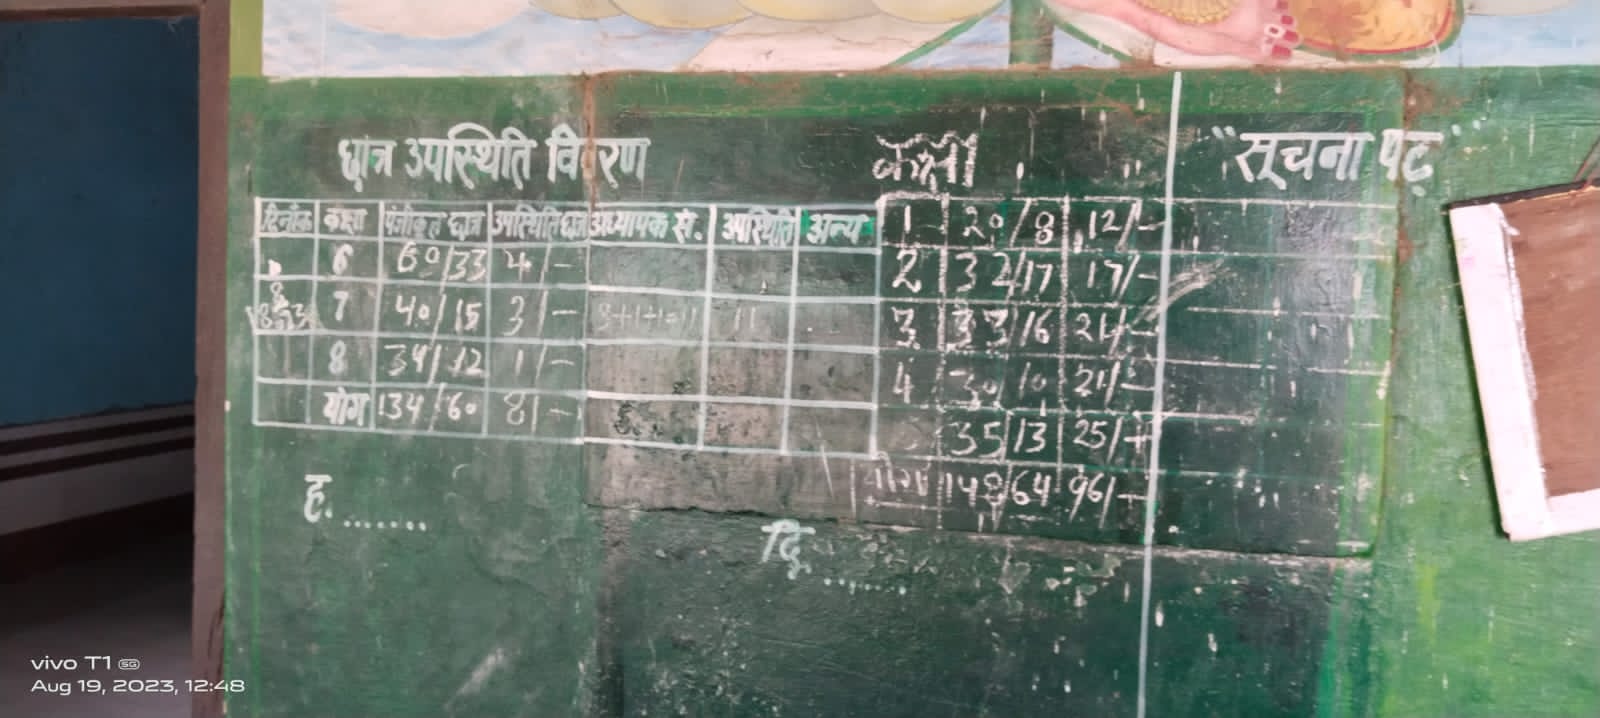 छात्र उपस्थिति विवरण
कक्षा
"सूचना पट"
दिनाँक कक्षा पंजीकृत छात्र उपस्थिति छात्र अध्यापक सं. उपस्थिति अन्य 1 20/8 12/-
6 60/33 4/- 2 32/17 17/-
7 40/15 3/- 11 3 33/16 21/-
8 34/12 1/- 4 30/10 21/-
योग 134/60 8/- 35/13 25/-
148/64 96/-
ह........
दि.......
vivo T1 5G
Aug 19, 2023, 12:48